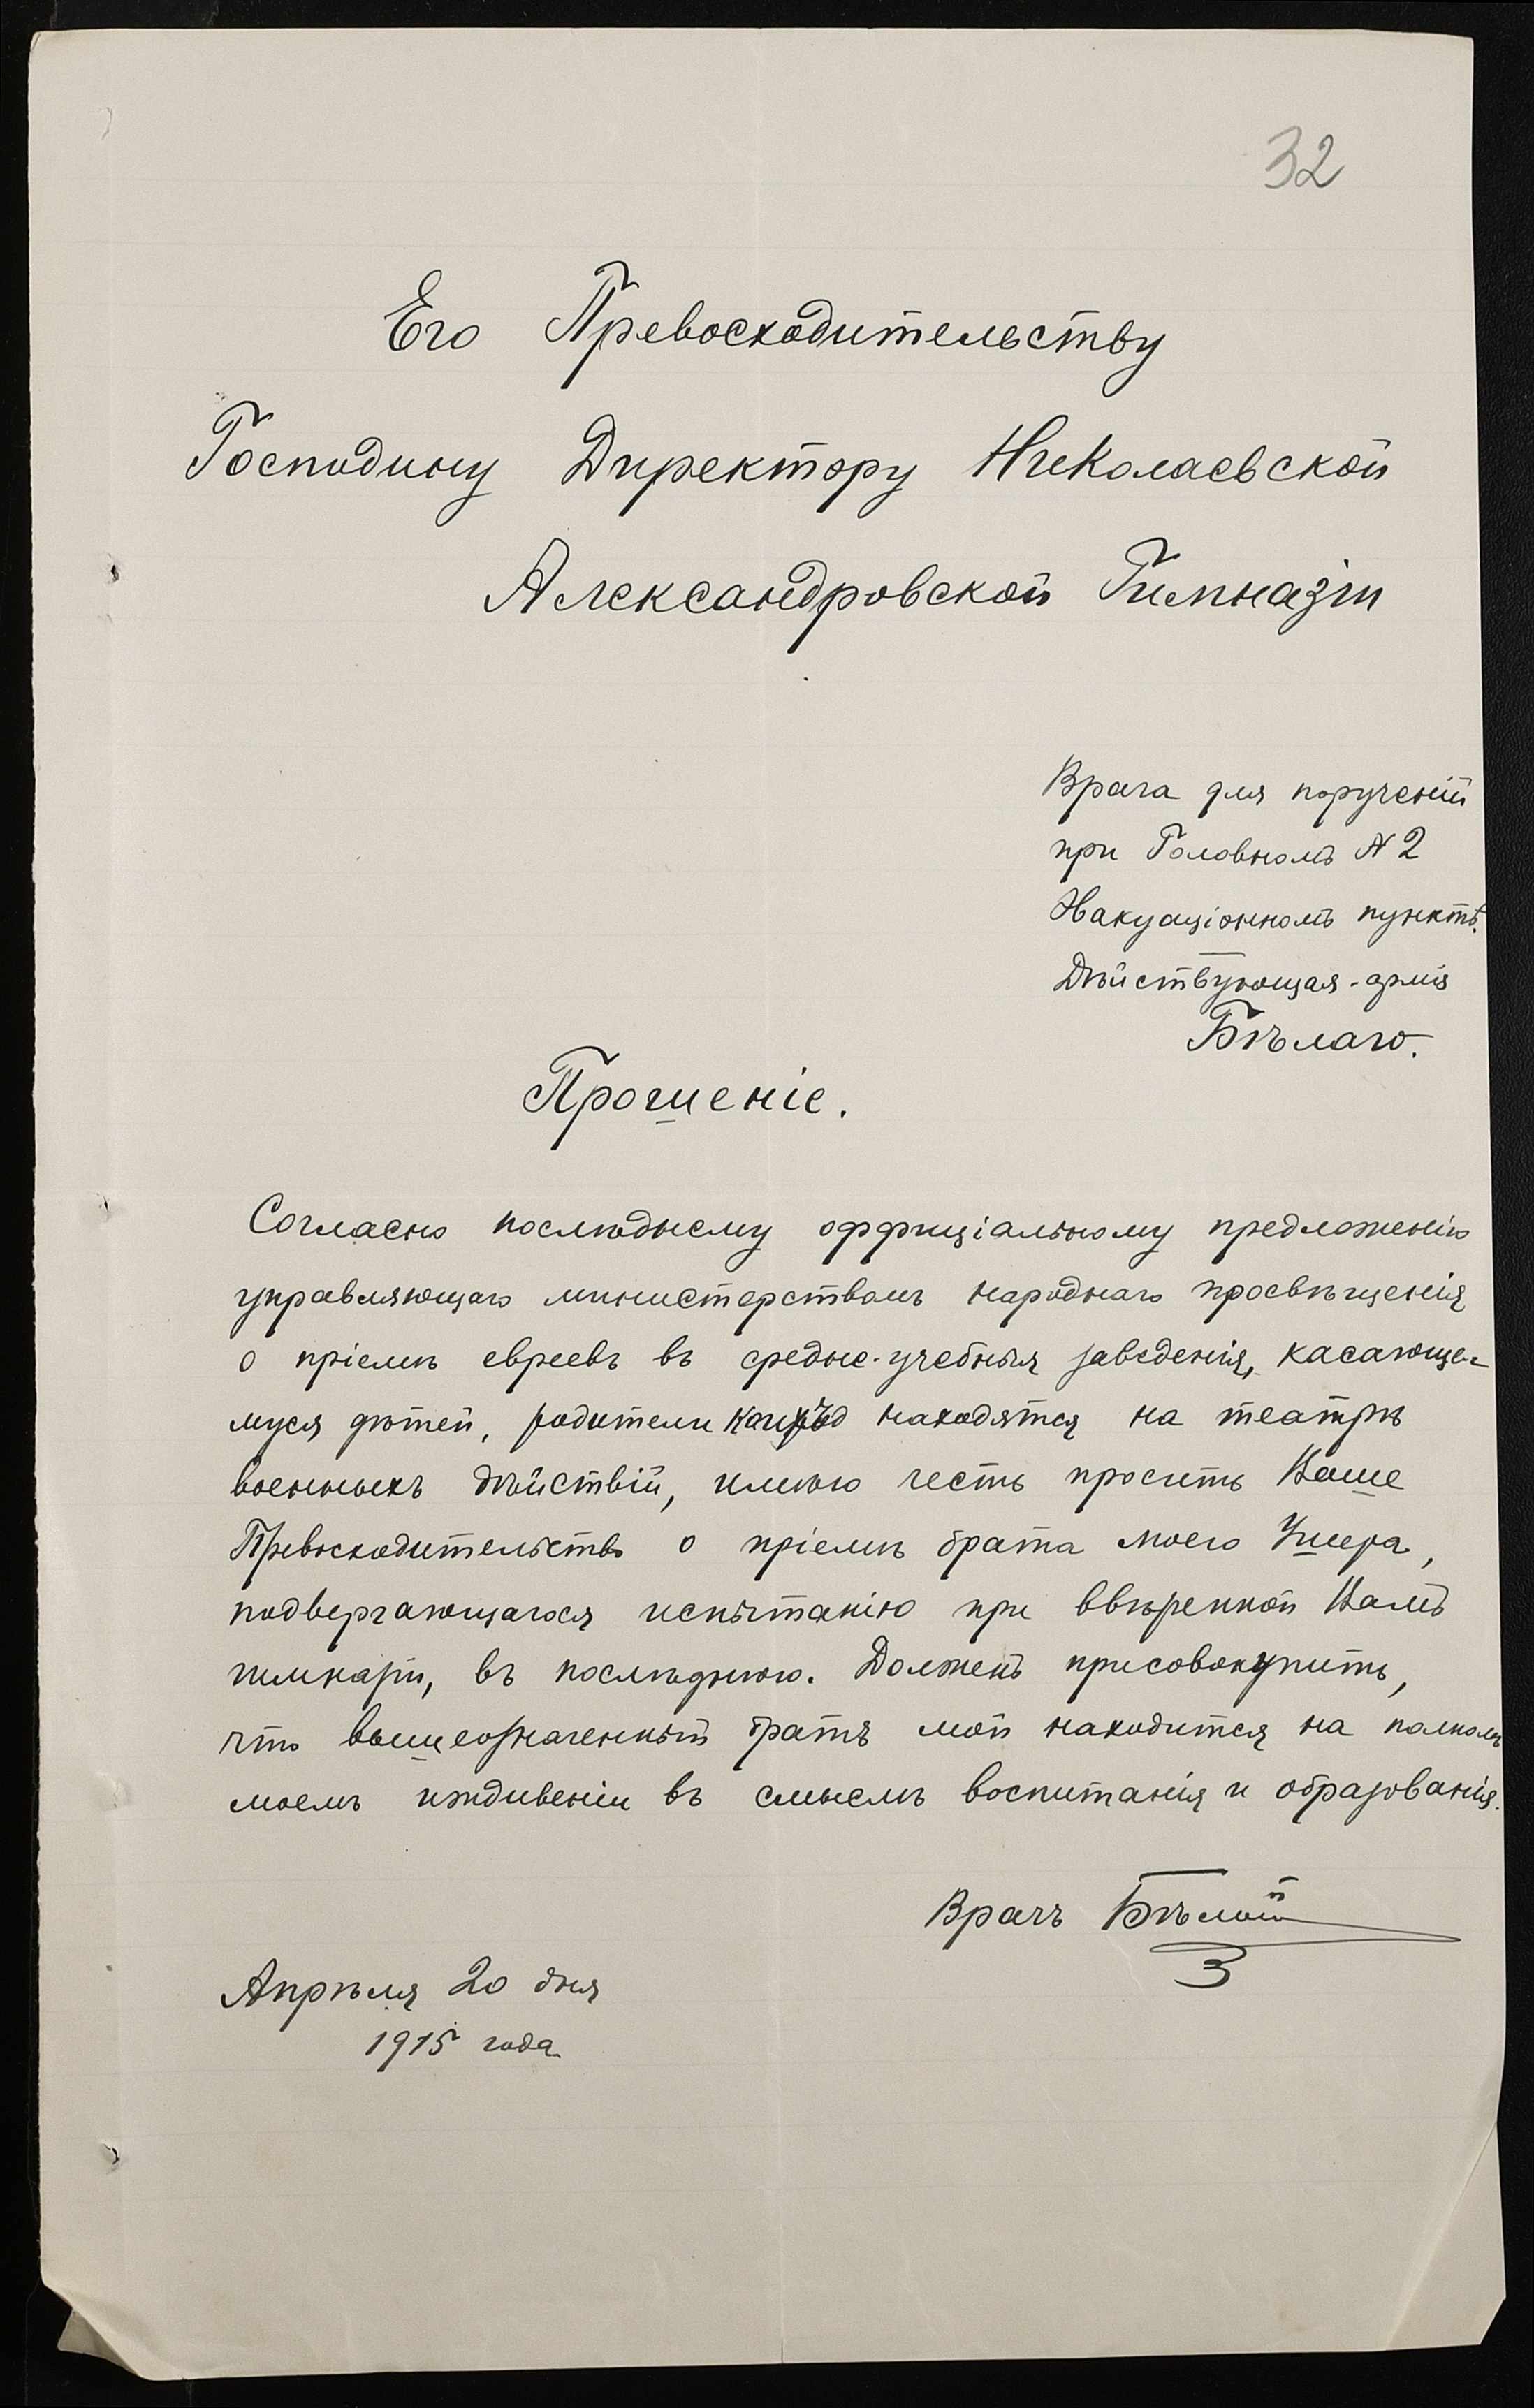 32
Его Превосходительству
Господину Директору Николаевской
Александровской Гимназіи
Врача для порученій
при Головномъ № 2
Эвакуаціонномъ пунктѣ.
Дѣйствующая армія
Бѣлаго.
Прошеніе.
Согласно послѣднему оффиціальному предложенію
управляющаго министерствомъ народнаго просвѣщенія
о пріемѣ евреевъ въ средне-учебныя заведенія, касающе-
муся дѣтей, родители находятся на театрѣ
военныхъ дѣйствій, имѣю честь просить Ваше
Превосходительство о пріемѣ брата моего Ушера,
подвергающагося испытанію при ввѣренной Вамъ
гимназіи, въ послѣднюю. Долженъ присовокупить,
что вышеозначенный братъ мой находится на полномъ
моемъ иждивеніи въ смыслѣ воспитанія и образованія.
Врачъ Бѣлый
Апрѣля 20 дня
1915 года